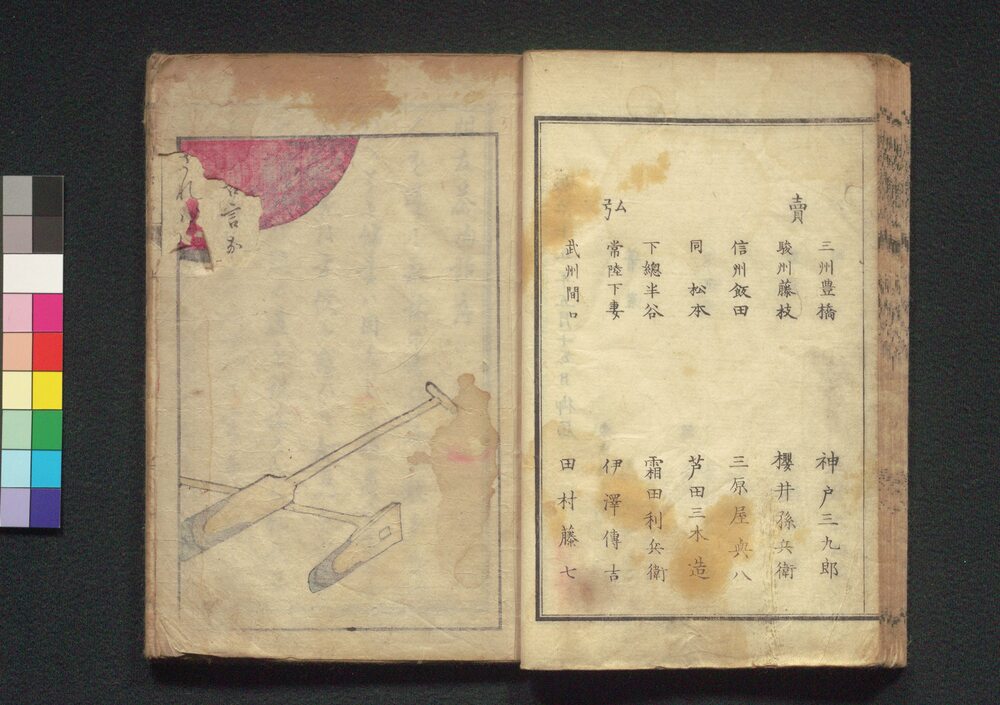 賣弘
三州豊橋 神戸三九郎
駿州藤枝 櫻井孫兵衛
信州飯田 三原屋典八
同松本 芦田三木造
下總半谷 霜田利兵衛
常陸下妻 伊澤傳吉
武州間口 田村藤七
言